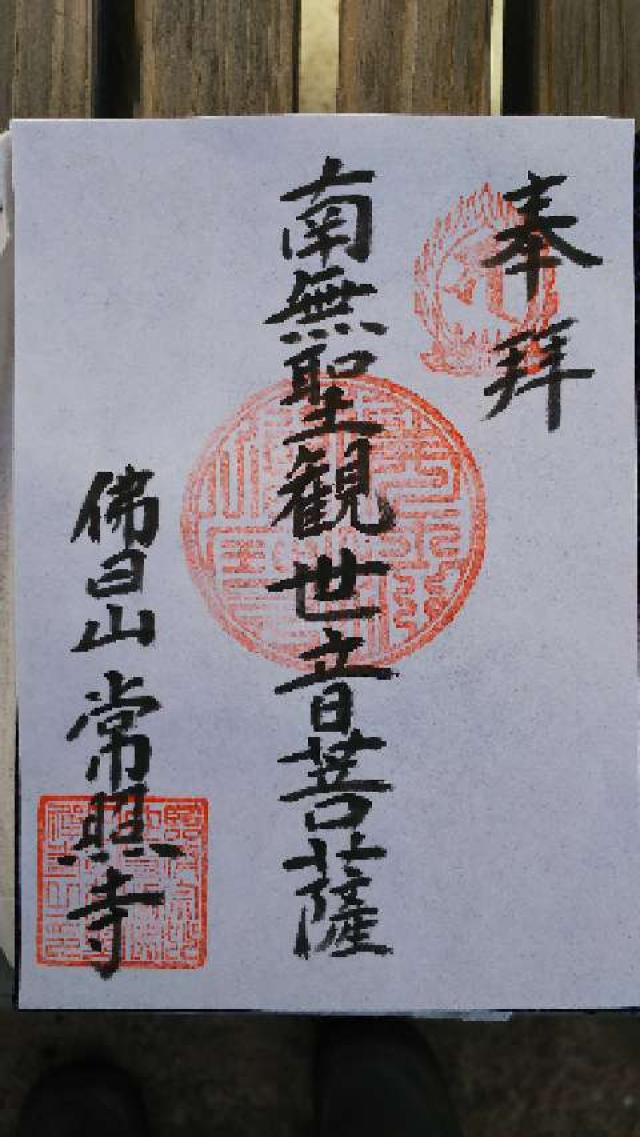 奉拜
南無聖観世音菩薩
佛日山常照寺